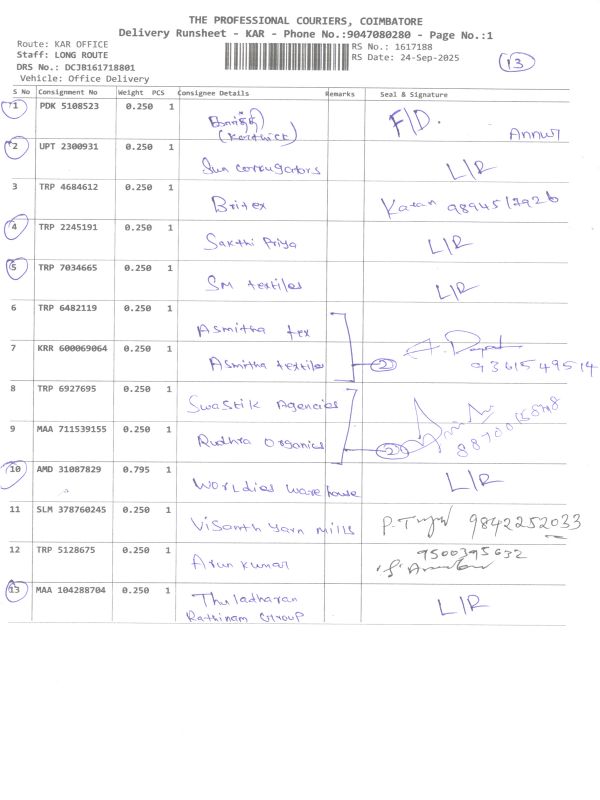 THE PROFESSIONAL COURIERS, COIMBATORE
Delivery Runsheet - KAR - Phone No.:9047080280 - Page No.:1
Route: KAR OFFICE
RS No.: 1617188
Staff: LONG ROUTE
RS Date: 24-Sep-2025
13
DRS No.: DCJB161718801
Vehicle: Office Delivery
S No Consignment No Weight PCS Consignee Details Remarks Seal & Signature
1 PDK 5108523 0.250 1 F/D. Annur
(Karthick)
2 UPT 2300931 0.250 1 Sun corrugators L/R
3 TRP 4684612 0.250 1 Britex
4 TRP 2245191 0.250 1 Sakthi Priya L/R
5 TRP 7034665 0.250 1 SM textiles L/R
6 TRP 6482119 0.250 1 Asmitha tex
7 KRR 600069064 0.250 1 Asmitha textiles 2 9361549514
8 TRP 6927695 0.250 1 Swastik Agencies
9 MAA 711539155 0.250 1 Rudhra Organics 2
10 AMD 31087829 0.795 1 Worldies ware house L/R
11 SLM 378760245 0.250 1 Visanth yarn mills 9842252033
12 TRP 5128675 0.250 1 Arun kumar 9500395632
13 MAA 104288704 0.250 1 Thuladharan L/R
Rathinam Group